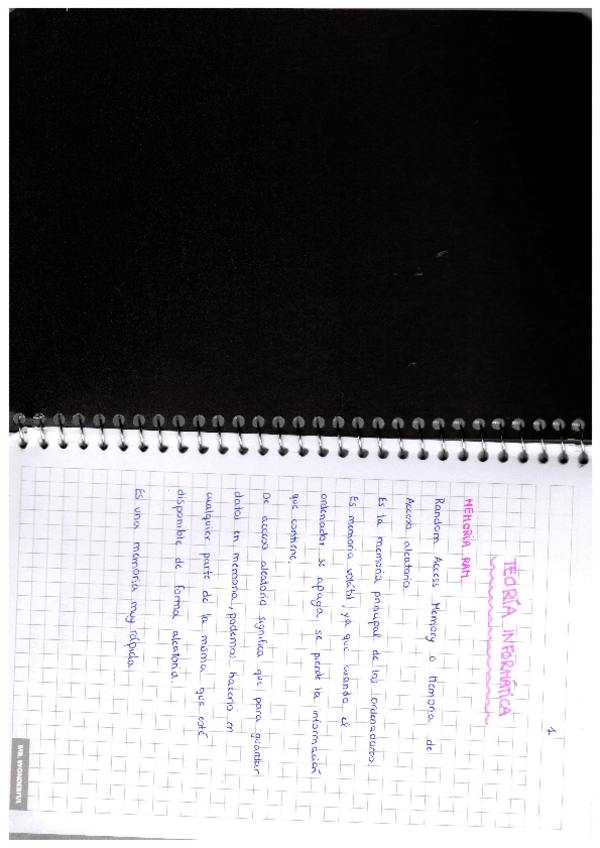 1
TEORÍA INFORMÁTICA
MEMORIA RAM
Random Access Memory o Memoria de
Acceso aleatorio.
Es la memoria principal de los ordenadores.
Es memoria volátil, ya que cuando el
ordenador se apaga, se pierde la información
que contiene.
De acceso aleatorio significa que para guardar
datos en memoria, podemos hacerlo en
cualquier parte de la misma que esté
disponible de forma aleatoria.
Es una memoria muy rápida
MR. WONDERFUL